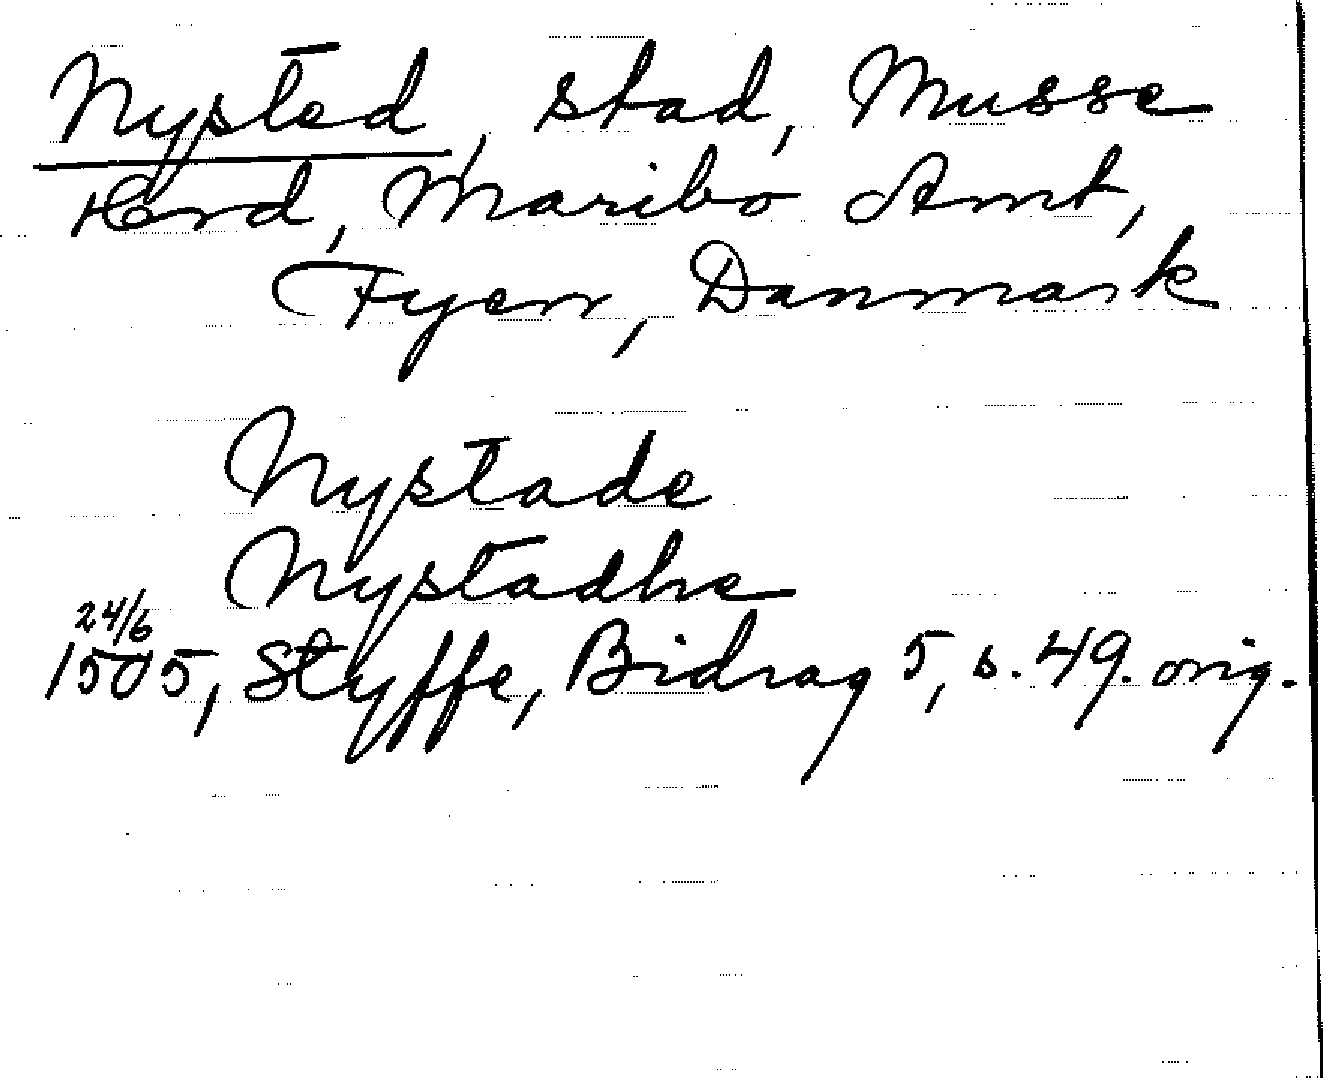 Nysted, stad, Musse
Herd, Maribo Amt,
Fyen, Danmark
Nystade
Nystadhe
24/6
1505, Styffe, Bidrag 5, s. 49. orig.